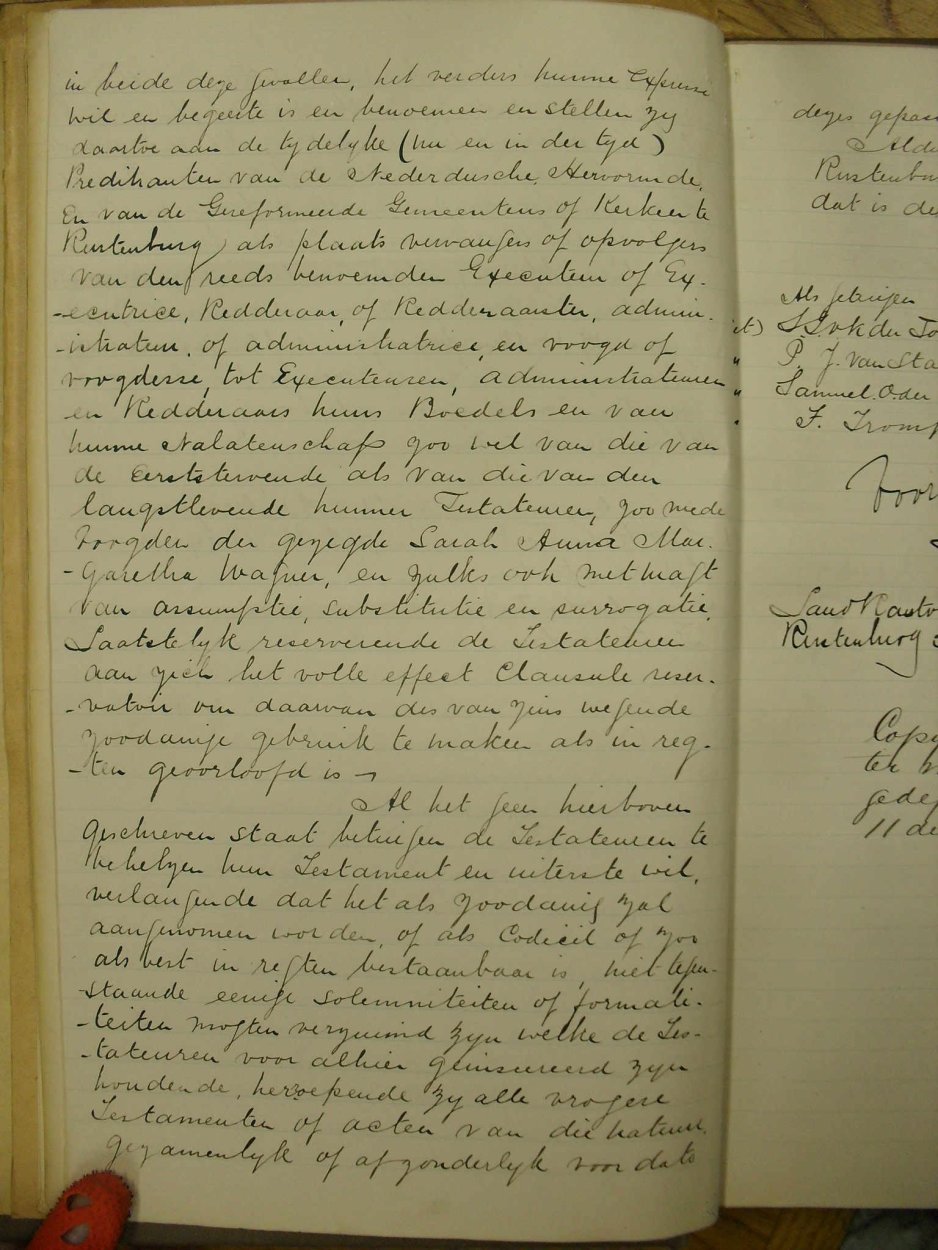 in beide deze gevallen, het verders hunne Expresse
wil en begeerte is en benoemen en stellen zy
daartoe aan de tydelyke (nu en in der tyd)
Predikanten van de Nederduische, Hervormde,
En van de Gereformeerde Gemeentens of Kerken te
Rustenburg) als plaats vervangers of opvolgers
van den reeds benoemden Executeur of Ex-
-ecutrice, Redderaar, of Redderaarster, admin-
-istrateur, of administratrice, en voogd of
voogdesse, tot Executeuren, administrateuren
en Redderaars huns Boedels en van
hunne Nalatenschap zoo wel van die van
de eerststervende als van die van den
langstlevende hunner Testateuren, zoo mede
Voogden der gezegde Sarah Anna Mar-
-garetha Wagner, en zulks ook met magt
van assumptie, substitutie en surrogatie,
Laatstelyk reserverende de Testateuren
aan zich het volle effect Clausule reser-
-vatoir om daarvan des van zins wezende
zoodanige gebruik te maken als in reg-
-ten geoorloofd is
Al het geen hierboven
geschreven staat betuigen de Testateuren te
behelzen hun Testament en uiterste wil,
verlangende dat het als zoodanig zal
aangenomen worden, of als Codicil of zoo
als best in regten bestaanbaar is, niet tegen-
-staande eenige solemniteiten of formali-
-teiten mogten verzuimd zyn welke de Tes-
-tateuren voor alhier geinsereerd zyn
houdende, herroepende zy alle vrogere
Testamenten of acten van die natuur,
gezamenlyk of afzonderlyk voor dato
dezes gepass
Aldu
Rustenbur
dat is de
Als getuigen
et) S. S. v k der To
" P. J. van Sta
" Samuel. Oder
" F. Tromp
Voor
Land Kanto
Rustenburg
Copy
ter
gedep
11 de